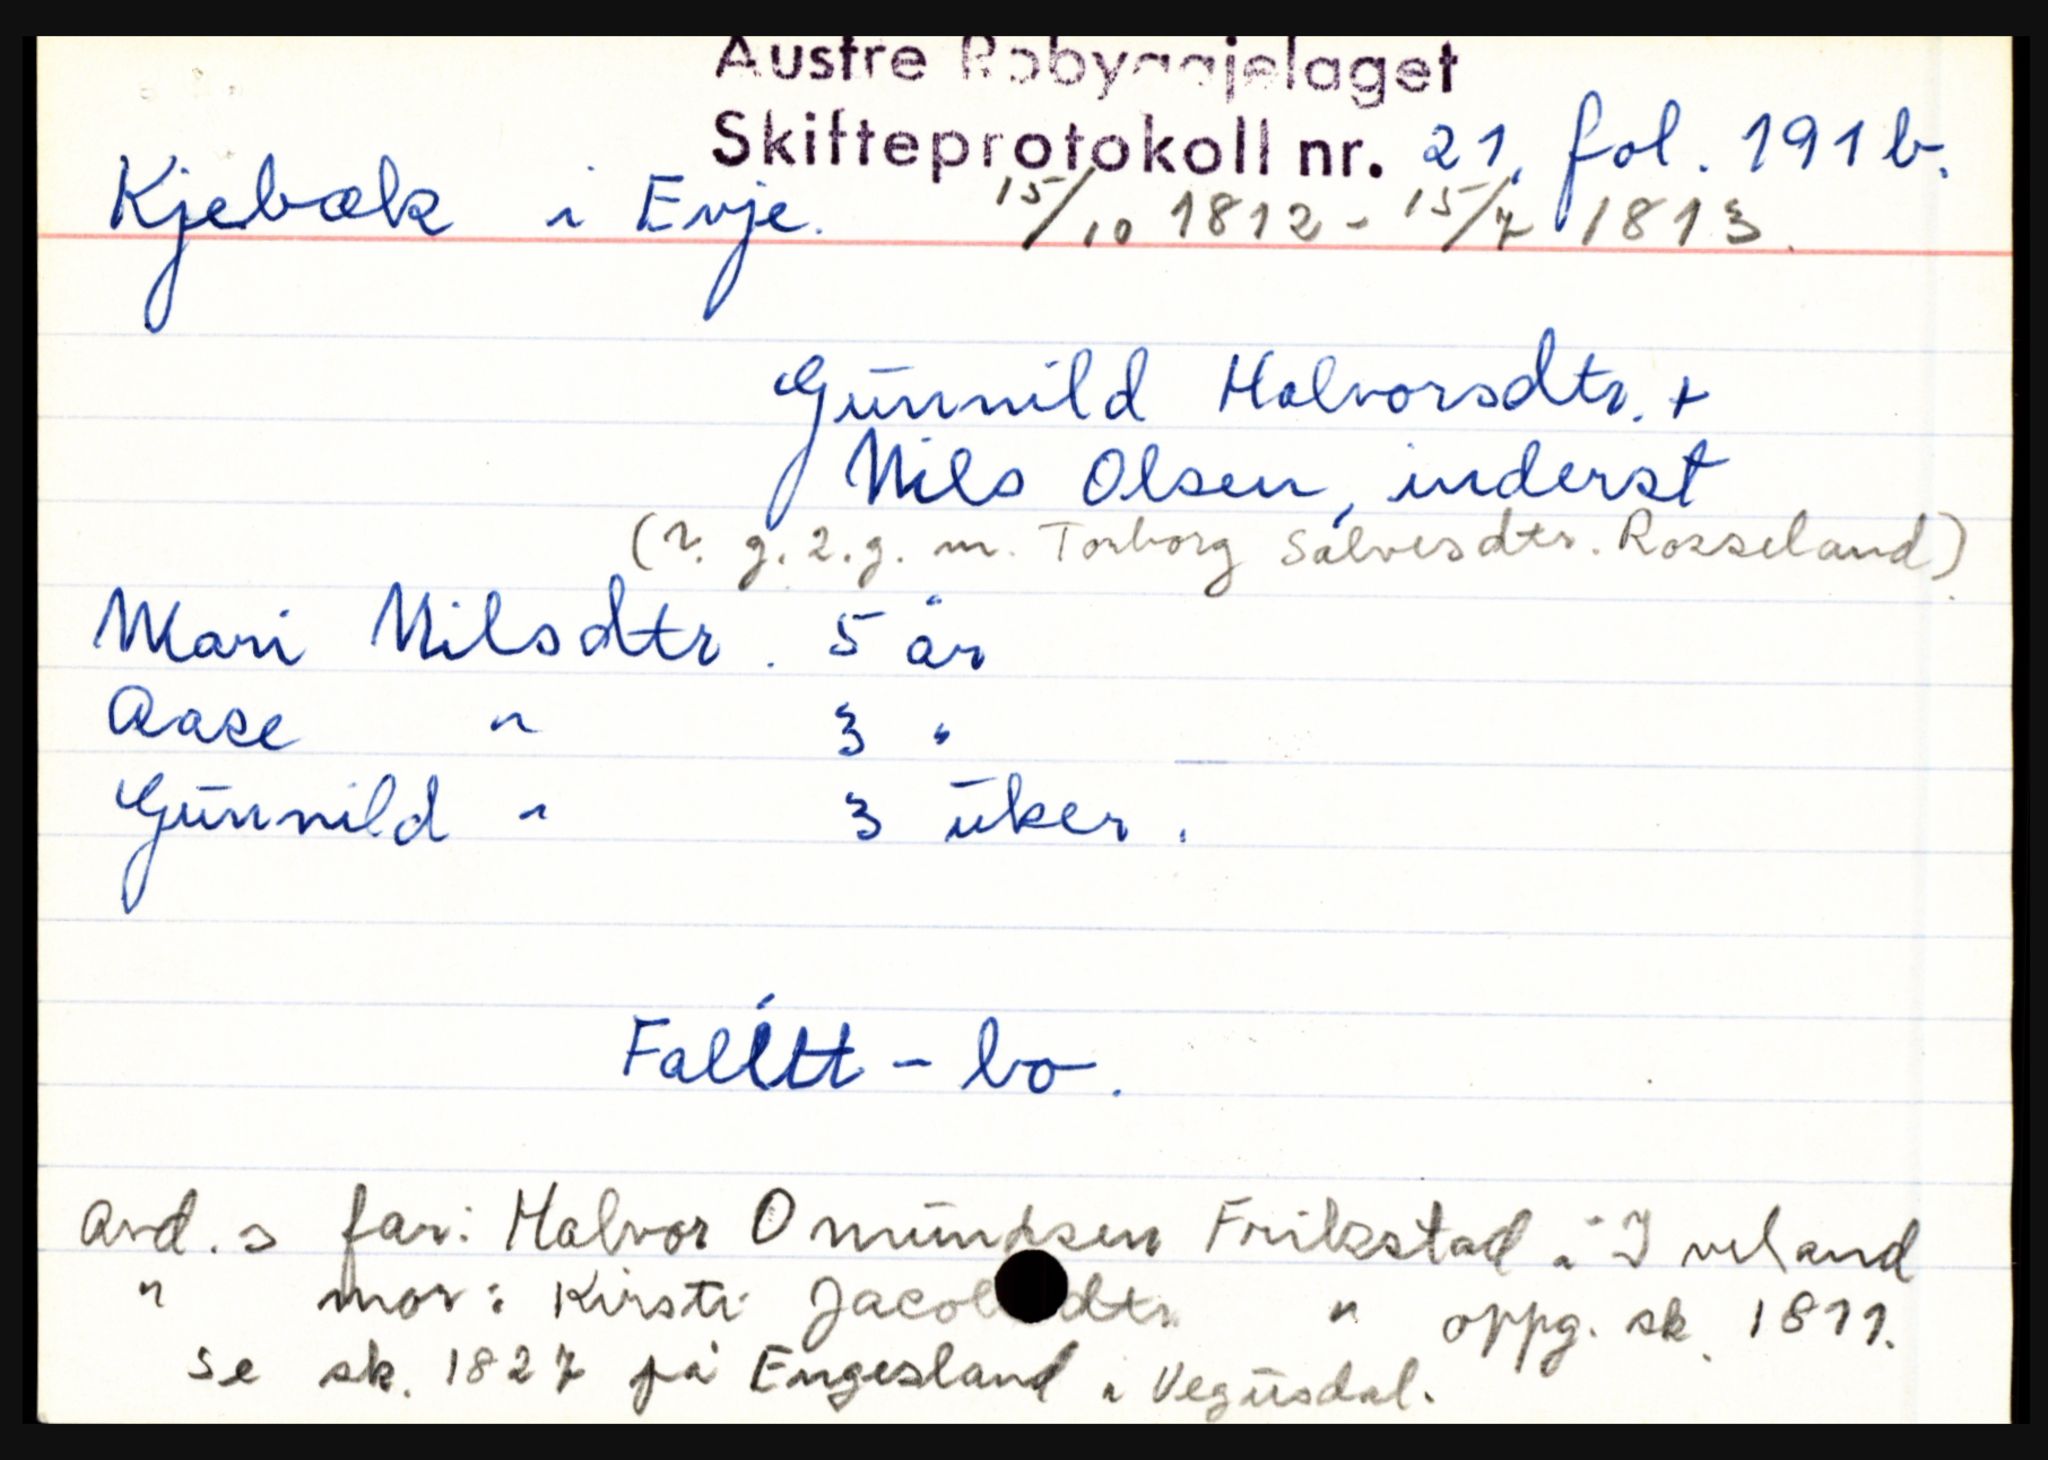 Austre Robyggjelaget
Skifteprotokoll nr. 21, fol. 191 b.
Kjebæk i Evje. 15/10 1812 - 15/7 1813.
Gunnild Halvorsdtr. +
Nils Olsen, inderst
g. 2. g. m. Torborg Salvesdtr. Rosseland)
Mari Nilsdtr. 5 år
Aase " 3 "
Gunnild " 3 uker.
Falitt - bo.
avd.s far: Halvor Omundsen Frikstad i Iveland
" mor: Kirsti Jacobsdtr. " oppg. sk. 1811.
se sk. 1827 på Engesland i Vegusdal.